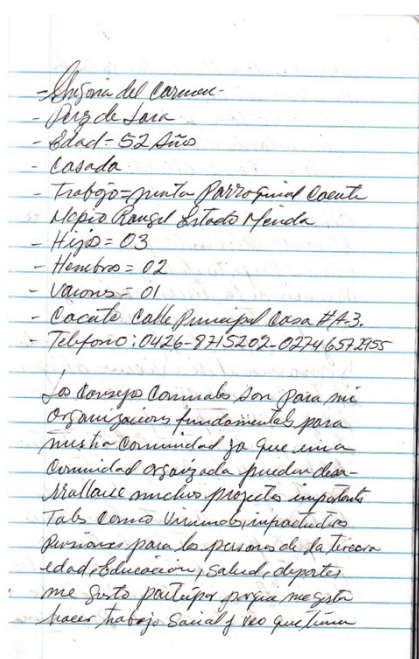 - del Carmen -
- Pérez de Lara
- Edad = 52 Año
- Casada
- Trabajo = Junta Parroquial Cacute
Mcpio Rangel Estado Merida
- Hijos = 03
- Hembras = 02
- Varones = 01
- Cacute Calle Principal Casa # A-3.
- Telefono: 0426-8715202-0274 6572955
Los Consejos Comunales son para mi
organizaciones fundamentales para
nuestra comunidad ya que una
comunidad organizada pueden desa-
rrollarse muchos proyectos importantes
Tales como Viviendas,
Pensiones para las personas de la tercera
edad, Educacion, Salud, deportes
me gusta participar porque me gusta
hacer trabajo Social y veo que